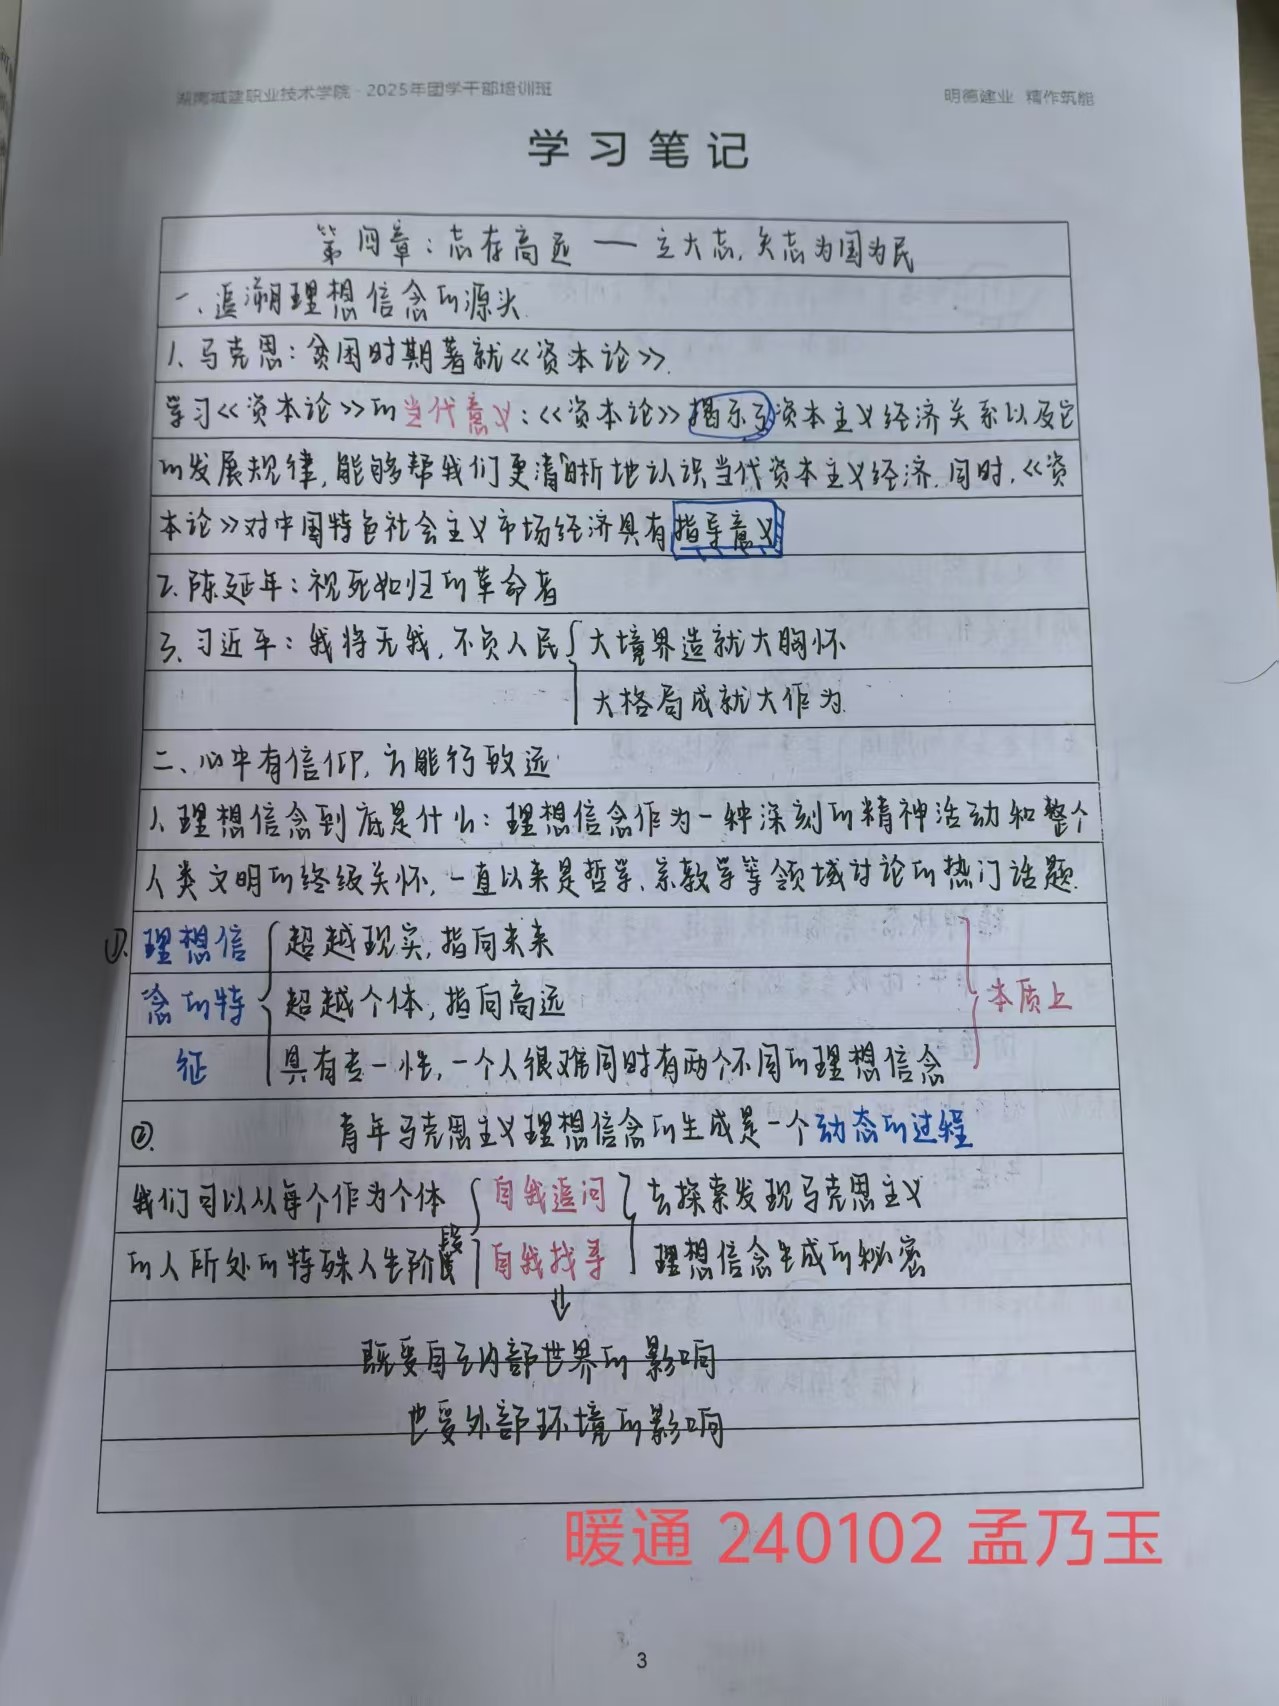 湖南城建职业技术学院·2025年团学干部培训班
明德建业 精作筑能
学习笔记
第四章：志存高远 — 立大志,矢志为国为民
一、追溯理想信念的源头.
1、马克思：贫困时期著就《资本论》.
学习《资本论》的当代意义：《资本论》揭示了资本主义经济关系以及它
的发展规律,能够帮我们更清晰地认识当代资本主义经济.同时,《资
本论》对中国特色社会主义市场经济具有指导意义
2、陈延年：视死如归的革命者
3、习近平：我将无我,不负人民 大境界造就大胸怀
大格局成就大作为.
二、心中有信仰,方能行致远.
1、理想信念到底是什么：理想信念作为一种深刻的精神活动和整个
人类文明的终级关怀,一直以来是哲学、宗教学等领域讨论的热门话题.
①.理想信 超越现实,指向未来
念的特 超越个体,指向高远 本质上
征 具有专一性,一个人很难同时有两个不同的理想信念
②. 青年马克思主义理想信念的生成是一个动态的过程
我们可以从每个作为个体 自我追问 去探索发现马克思主义
的人所处的特殊人生阶段 自我找寻 理想信念生成的秘密
⇓
既受自己内部世界的影响
也受外部环境的影响
暖通 240102 孟乃玉
3